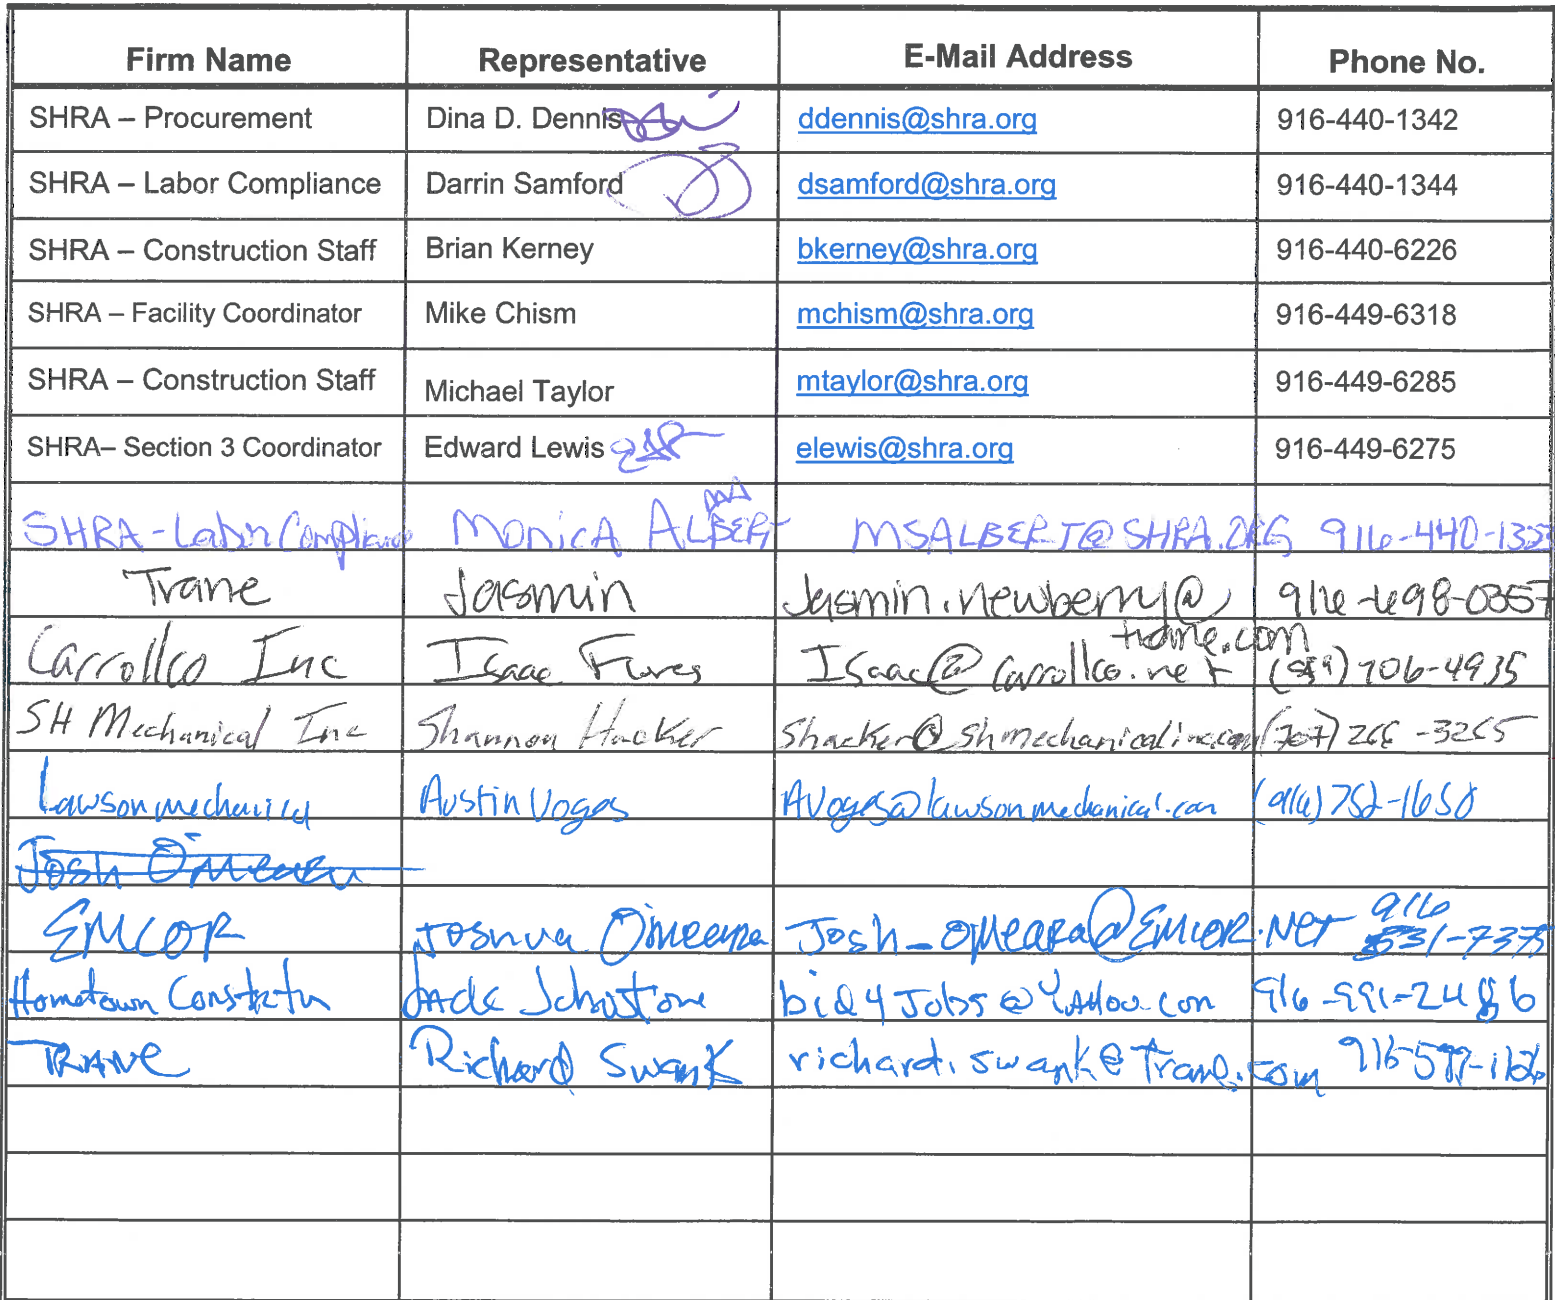 Firm Name Representative E-Mail Address Phone No.
SHRA – Procurement Dina D. Dennis ddennis@shra.org 916-440-1342
SHRA – Labor Compliance Darrin Samford dsamford@shra.org 916-440-1344
SHRA – Construction Staff Brian Kerney bkerney@shra.org 916-440-6226
SHRA – Facility Coordinator Mike Chism mchism@shra.org 916-449-6318
SHRA – Construction Staff Michael Taylor mtaylor@shra.org 916-449-6285
SHRA– Section 3 Coordinator Edward Lewis elewis@shra.org 916-449-6275
SHRA-Labor Compliance MonicA ALBERT MSALBERT@SHRA.ORG
Trane Jasmin Jasmin.newberry@ 916-698-0357
trane.com
Carrollco Inc Isaac Isaac@Carrollco.net
SH Mechanical Inc Shannon Hacker Shacker@shmechanicalinc.com
Lawson mechanical Austin Voges AVoges@lawsonmechanical.com (916) 752-1650
Josh
EMCOR Joshua O'meara Josh_OMeara@EMCOR.NET 916
Hometown bid4Jobs@YAHoo.com 916-991-2486
TRANE Richard Swank richard.swank@Trane.com